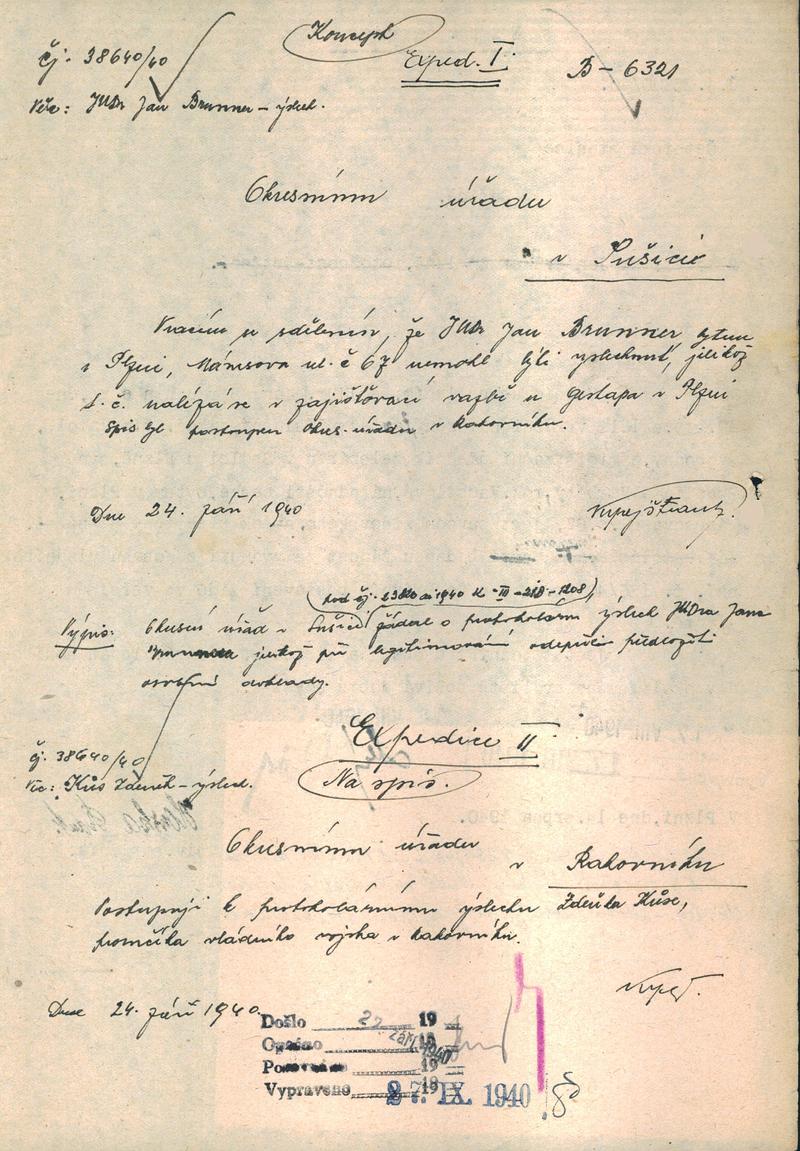 Koncept
čj: 38640/40
Exped. I.
B-6321
Věc: JUDr Jan Brunner - výslech.
Okresnímu úřadu
v Sušici
Vracím se sdělením, že JUDr Jan Brunner, bytem
v Plzni, Mánesova ul. č 67 nemohl býti vyslechnut, jelikož
t. č. nalézá se v zajišťovací vazbě u gestapa v Plzni
Spis byl postoupen Okres. úřadu v Rakovníku.
Dne 24. září 1940
pod čj. 1940
Výpis: Okresní úřad v Sušici žádal o protokolární výslech JUDra Jana
Brunnera jelikož při legitimování odepřel předložiti
osobní doklady.
Expedice II
čj. 38640/40
Věc: Kůs Zdeněk - výslech.
Na spis.
Okresnímu úřadu
v Rakovníku
Postupuji k protokolárnímu výslechu Zdeňka Kůse,
vládního vojska v Rakovníku.
Dne 24. září 1940.
Došlo 19
Opsáno 19
19
Vypraveno 19
27. IX. 1940
V Plzni, dne 14. srpna 1940.